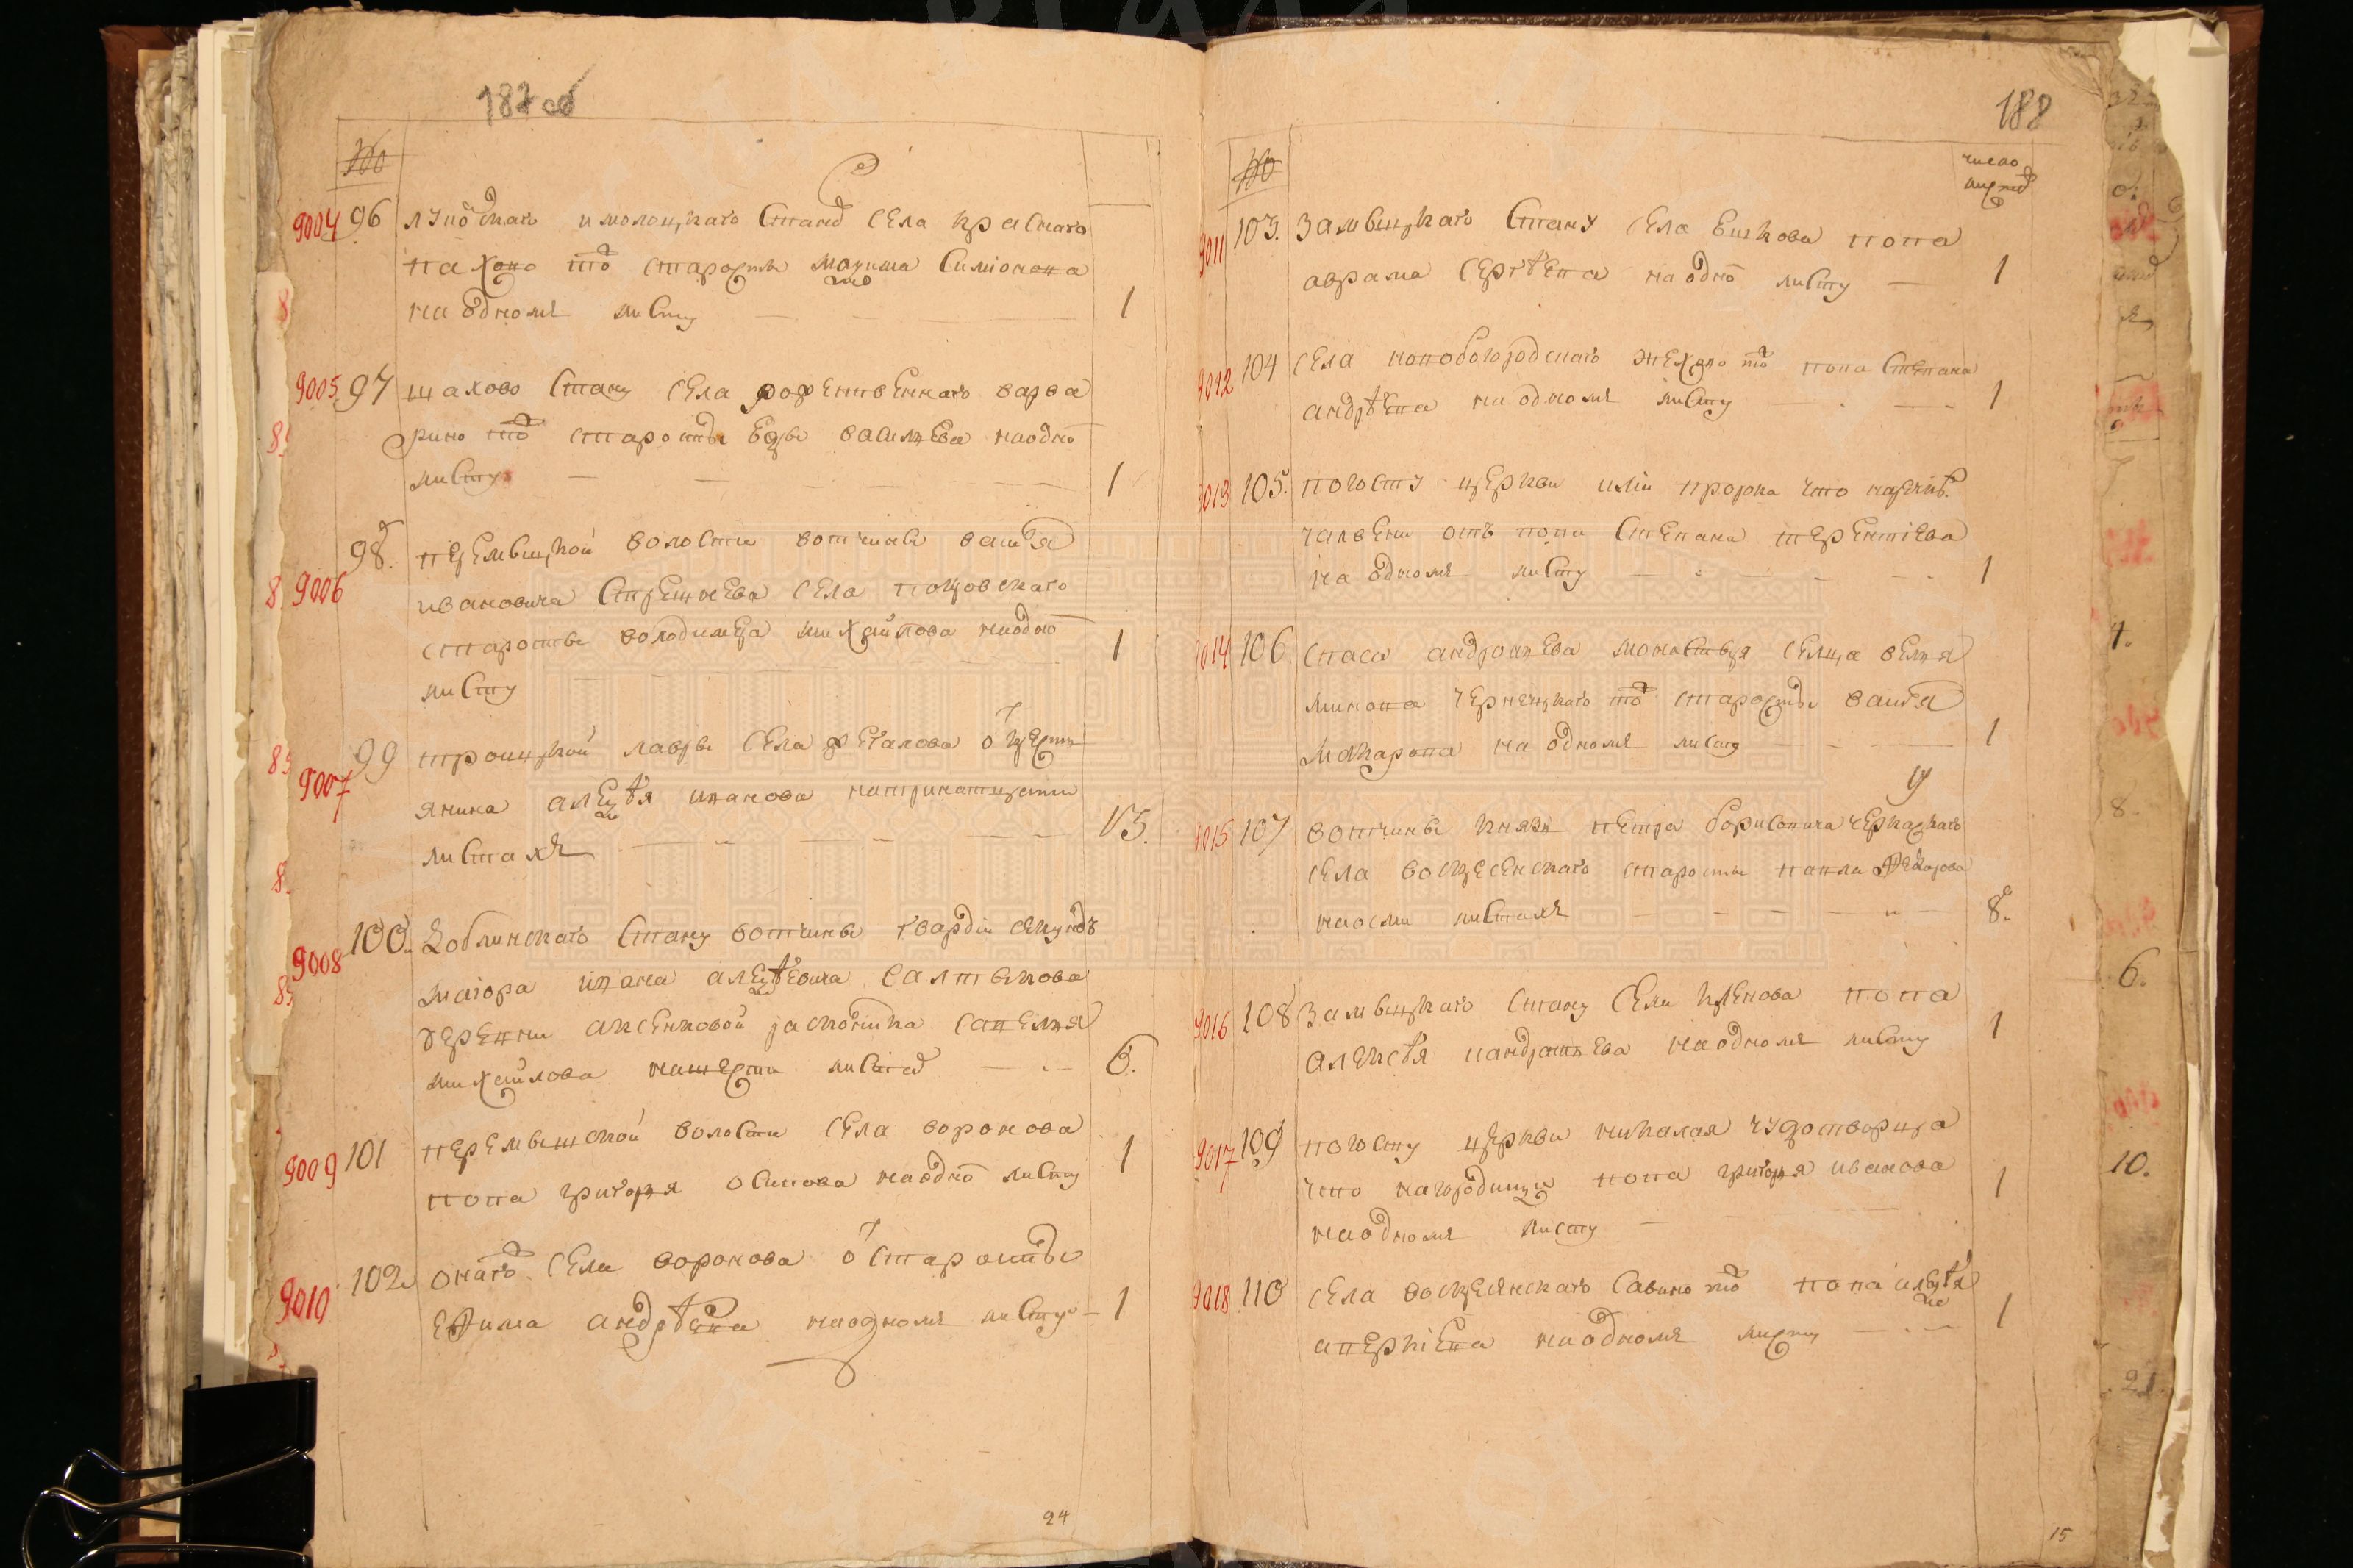 187 об
№
9004 96 и молоцкаго станов села краснаго
пахоно тож старосты максима симионова
на одномъ листу 1
9005 97 шахово стану села рожественнаго варва
рино тож старосты василиева на одно
листу 1
98. перемышской волости вотчины василя
9006 ивановича стрешнева села покровского
старосты володимера михайлова на одно
листу 1
99 троицкой лавры села от
9007 алексѣя иванова натринатцети
листахъ 13.
100. кобылинскаго стану вотчины гвардiи секундъ
9008 маiора ивана алексѣевича салтыкова
деревни аксенковой савелия
михайлова нашести листах 6.
101 перемышской волости села воронова
9009 попа григория осипова на одно листу 1
102 онаго села воронова от старосты
9010 ефима андрѣева на одномъ листу 1
24
188
№ число листов
9011 103. замыцкаго стану села быкова попа
аврама сергѣева на одно листу 1
9012 104 села новобогородскаго жехоно тож попа степана
андрѣева на одномъ листу 1
9013 105. погосту церкви илiи пророка что
от попа степана терентiева
на одномъ листу 1
9014 106 спаса андрониева монастыря селца
милона чернецкаго тож старосты василя
макарова на одномъ листу 1
9015 107 вотчины князя петра борисовича черкаскаго
села воскресенскаго старосты павла федорова
на осми листахъ 8.
9016 108 замыцкаго стану села кленова попа
алексѣя кандратиева на одномъ листу 1
9017 109 погосту церкви николая чудотворца
что нагородищи попа григория иванова
на одномъ листу 1
9018 110 села воскресенскаго савино тож попа алексѣя
аверкiева на одномъ листу 1
15